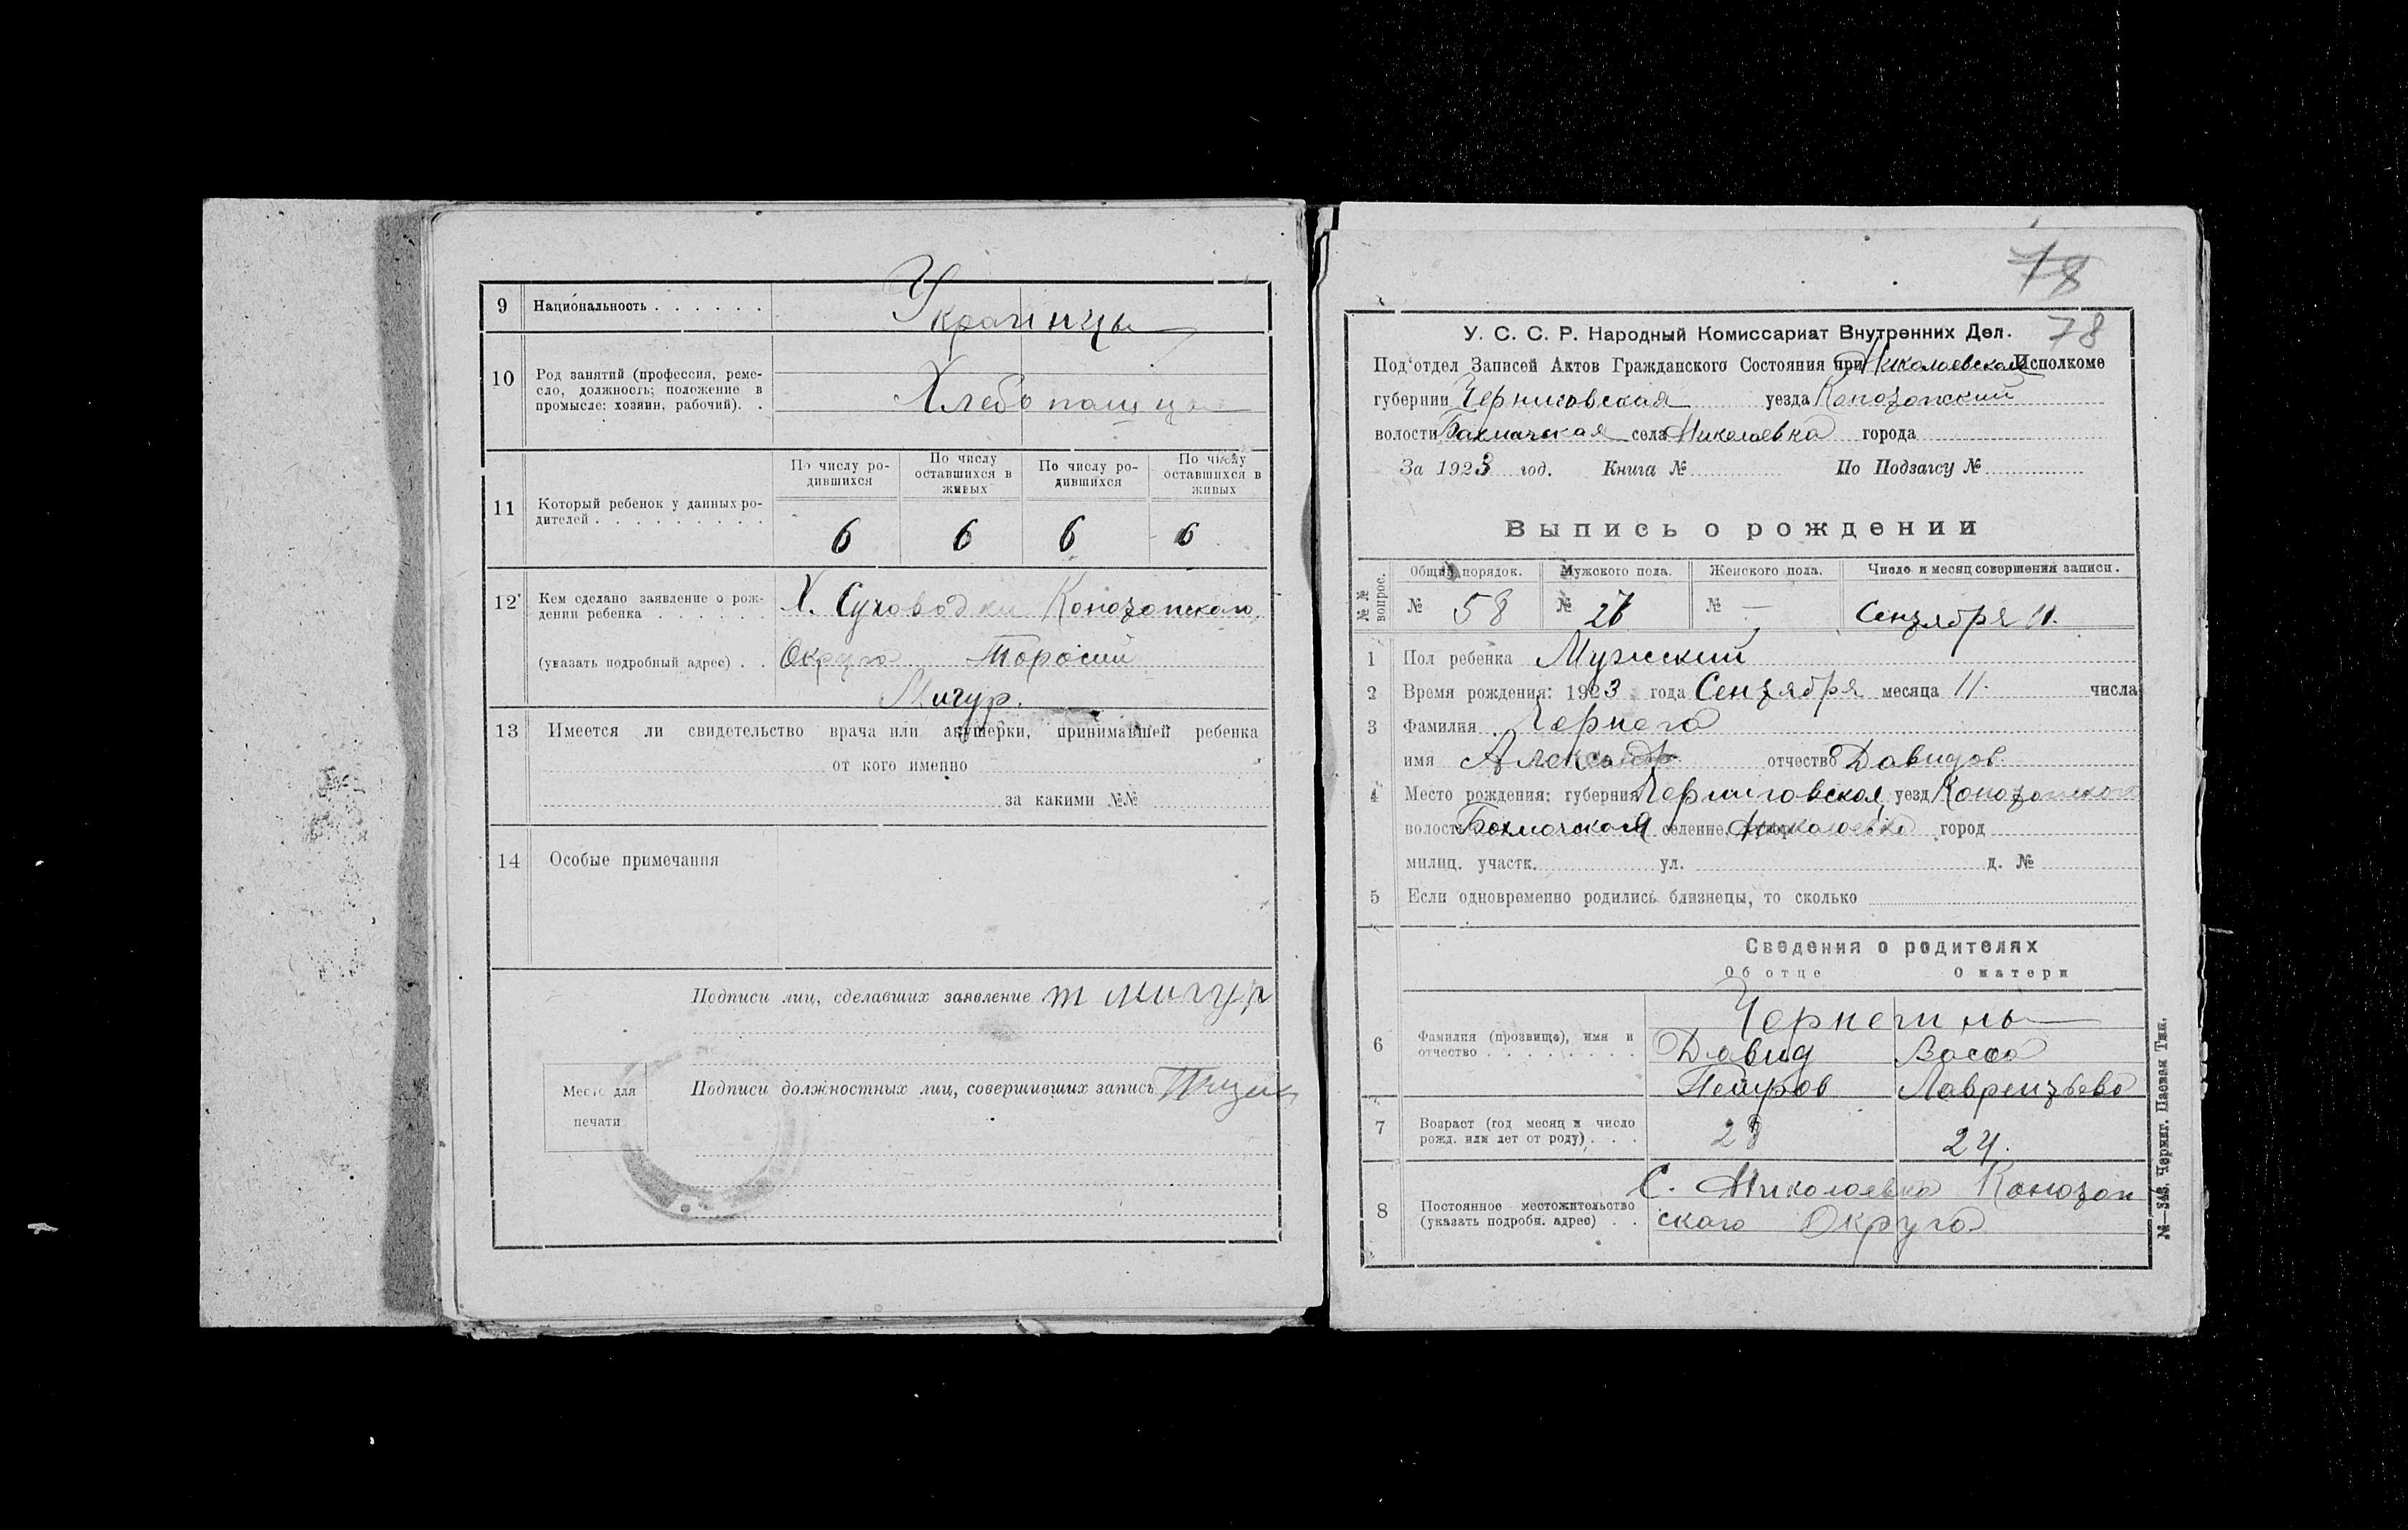 9 Национальность . . . . . . Украинцы
10 Род занятий (профессия, реме-
сло, должность; положение в
промысле: хозяин, рабочий). . Хлебопашцы
По числу ро-
дившихся
По числу
оставшихся в
живых
По числу ро-
дившихся
По числу
оставшихся в
живых
11 Который ребенок у данных ро-
дителей . . . . . . . . . .
6 6 6 6
12 Кем сделано заявление о рож-
дении ребенка . . . . . . Х. Суховодки Конотопского
(указать подробный адрес) . . Округа Торосий
Мигур.
13 Имеется ли свидетельство врача или акушерки, принимавшей ребенка
от кого именно
за какими №№
14 Особые примечания
Подписи лиц, сделавших заявление Т Мигур
Подписи должностных лиц, совершивших запись
Место для
печати
78
78
У. С. С. Р. Народный Комиссариат Внутренних Дел.
Под'отдел Записей Актов Гражданского Состояния при Николаевском Исполкоме
губернии Черниговская уезда Конотопский
волости Бахмачская села Николаевка города
За 1923 год. Книга № По Подзагсу №
Выпись о рождении
№ № вопрос.
Общий порядок. Мужского пола. Женского пола. Число и месяц совершения записи.
№ 58 № 27 № — Сентября 11.
1 Пол ребенка Мужский
2 Время рождения: 1923 года Сентября месяца 11. числа
3 Фамилия Чернега
имя Александр отчество Давидов
4 Место рождения: губерния Черниговская уезд Конотопского
волость Бахмачская селение, Николаевка город
милиц. участк. ул. д. №
5 Если одновременно родились близнецы, то сколько
Сведения о родителях
Об отце О матери
Чернегины
6 Фамилия (прозвище), имя и
отчество . . . . . . . . .
Давид Васса
Петров Лаврентьева
7 Возраст (год месяц и число
рожд. или лет от роду) . . . 28 24.
8 Постоянное местожительство
(указать подробн. адрес) . .
С. Николаевка Конотоп
скаго Округа
№—343. Черниг. Паевая Тип.